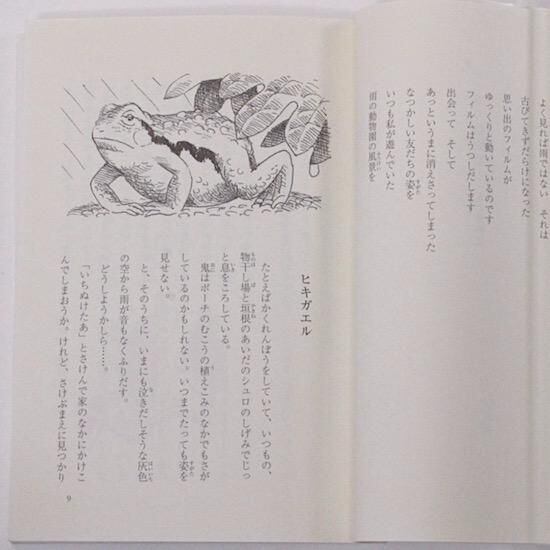 よく見れば雨ではない　それは
古びてきずだらけになった
思い出のフィルムが
ゆっくりと動いているのです
フィルムはうつしだします
出会って　そして
あっというまに消えさってしまった
なつかしい友だちの姿を
いつも私が遊んでいた
雨の動物園の風景を
ヒキガエル
たとえばかくれんぼうをしていて、いつもの、
物干し場と垣根のあいだのシュロのしげみでじっ
と息をころしている。
鬼はポーチのむこうの植えこみのなかでもさが
しているのかもしれない。いつまでたっても姿を
見せない。
と、そのうちに、いまにも泣きだしそうな灰色
の空から雨が音もなくふりだす。
どうしようかしら……。
「いちぬけたあ」とさけんで家のなかにかけこ
んでしまおうか。けれど、さけぶまえに見つかり
9